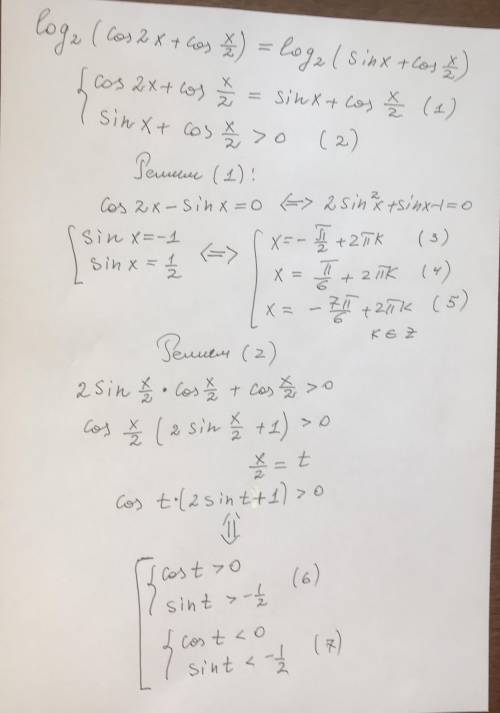 log₂(cos2x + cos x/2) = log₂(sinx + cos x/2)
{ cos 2x + cos x/2 = sinx + cos x/2 (1)
sinx + cos x/2 > 0 (2)
Решим (1):
cos 2x - sinx = 0 <=> 2sin²x + sinx - 1 = 0
[ sinx = -1 <=> [ x = - π/2 + 2πk (3)
sinx = 1/2 x = π/6 + 2πk (4)
x = - 7π/6 + 2πk (5)
k ∈ Z
Решим (2)
2 sin x/2 · cos x/2 + cos x/2 > 0
cos x/2 (2 sin x/2 + 1) > 0
x/2 = t
cos t · (2 sint + 1) > 0
⇕
[ { cost > 0 (6)
sint > -1/2
{ cost < 0 (7)
sint < -1/2